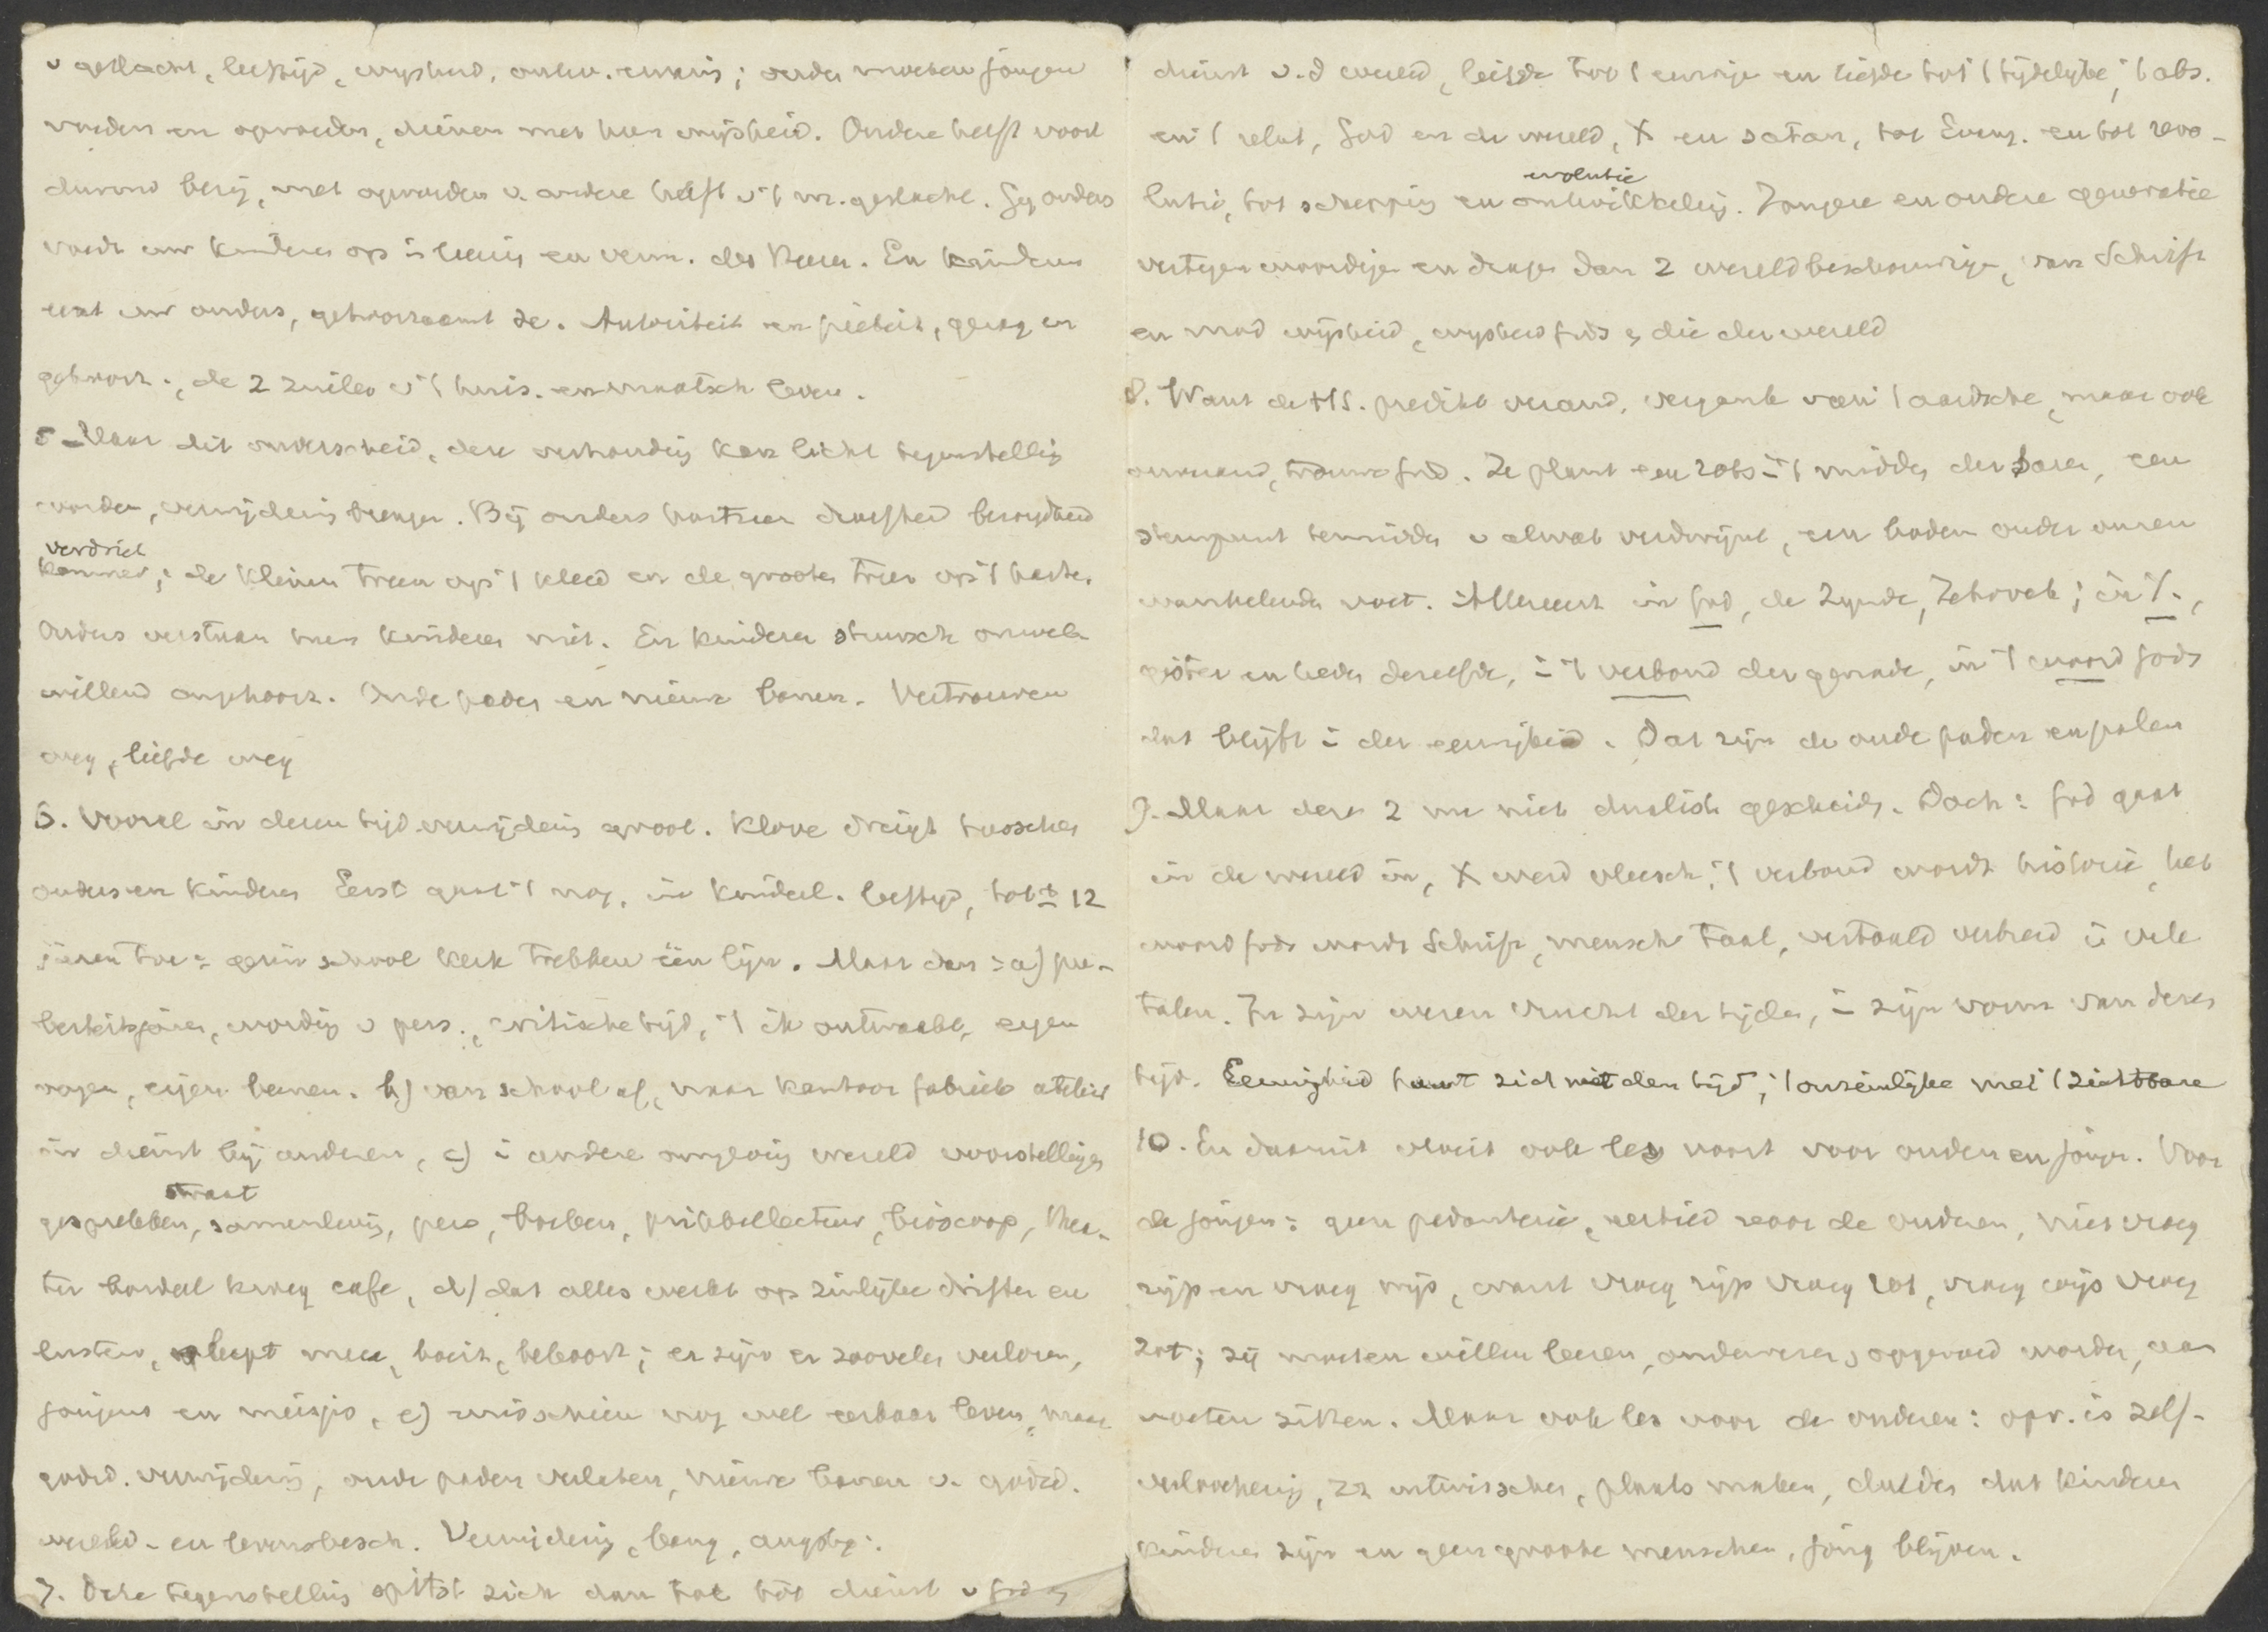 v geslacht, leeftijd, wijsheid, ontw. ervaris; ouders moeten jongen
voeden en opvoeden, dienen met hun wijsheid. Ouders helft voort
durend bezig, met opvoeden v. andere helft v 't m. geslacht. Gij ouders
voedt uw kinderen op in leerig en verm. des Heeren. En kinderen
eert uw ouders, gehoorzaamt ze. Autoriteit en piëteit, gezag en
gehoorz., de 2 zuilen v 't huis. en maatsch leven.
5 - Maar dit onderscheid, deze verhoudig kan licht tegenstellig
worden, verwijderig brengen. Bij ouders hartzeer droefheid bezorgdheid
verdriet
kommer; de kleinen treen op 't kleed en de grooten treen op 't harte.
Ouders verstaan hun kinderen niet. En kinderen stuursch onwel-
willend ongehoorz. Oude paden en nieuwe banen. Vertrouwen
weg, liefde weg
6. Vooral in dezen tijd verwijderig groot. Klove dreigt tusschen
ouders en kinderen Eerst gaat 't nog, in kinderl. leeftijd, tot ± 12
jaren toe: gezin school kerk trekken één lijn. Maar dan: a) pu-
berteitsjaren, wordig v pers., critische tijd, 't ik ontwaakt, eigen
wegen, eigen banen. b) van school af, naar kantoor fabriek atelier
in dienst bij anderen, c) i andere omgevig wereld voorstelligen
straat
gesprekken, samenlevig, pers, boeken, prikkellectuur, bioscoop, thea-
ter bordeel kroeg cafe, d) dat alles werkt op zinlijke driften en
lusten, sleept mee, boeit, bekoort; er zijn er zoovelen verloren,
jongens en meisjes, e) misschien nog wel eerbaar leven, maar
godsd. verwijderig, oude paden verlaten, nieuwe banen v. godsd.
wereld- en levensbesch. Verwijderig, bang, angstig.
7. Deze tegenstellig spitst zich dan toe tot dienst v God en
dienst v.d wereld, liefde tot 't eeuwige en liefde tot 't tijdelijke, 't abs.
en 't relat, God en de wereld, X en satan, tot Evang. en tot revo-
evolutie
lutie, tot scheppig en ontwikkelig. Jongere en oudere generatie
vertegenwoordigen en dragen dan 2 wereldbeschouwigen, van Schrift
en mod wijsheid, wijsheid Gods en die der wereld
8. Want de HS. predikt verand. vergankl van 't aardsche, maar ook
onverand, trouwe God. Ze plant een rots i 't midden der baren, een
steunpunt temidden v alwat verdwijnt, een bodem onder onzen
wankelenden voet. Allereerst in God, de Zijnde, Jehovah; in X.,
gister en heden dezelfde, i 't verbond der genade, in 't woord Gods
dat blijft i der eeuwigheid. Dat zijn de oude paden en palen
9. Maar deze 2 nu niet dualist. gescheiden. Doch: God gaat
in de wereld in, X werd vleesch, 't verbond wordt historie, het
woord Gods wordt Schrift, mensch taal, vertaald verbreid i vele
talen. In zijn wezen vrucht der tijden, i zijn vorm van dezen
tijd. Eeuwigheid huwt zich met den tijd, 't onzienlijke met 't zichtbare
10. En daaruit vloeit ook les voort voor ouden en jongen. Voor
de jongen: geen pedanterie, eerbied voor de ouderen, niet vroeg
rijp en vroeg wijs, want vroeg rijp vroeg rot, vroeg wijs vroeg
zot; zij moeten willen leeren, onderwezen, opgevoed worden, aan
voeten zitten. Maar ook les voor de ouderen: opv. is zelf-
verloochenig, zn uitwisschen, plaats maken, dulden dat kinderen
kinderen zijn en geen groote menschen, jong blijven.